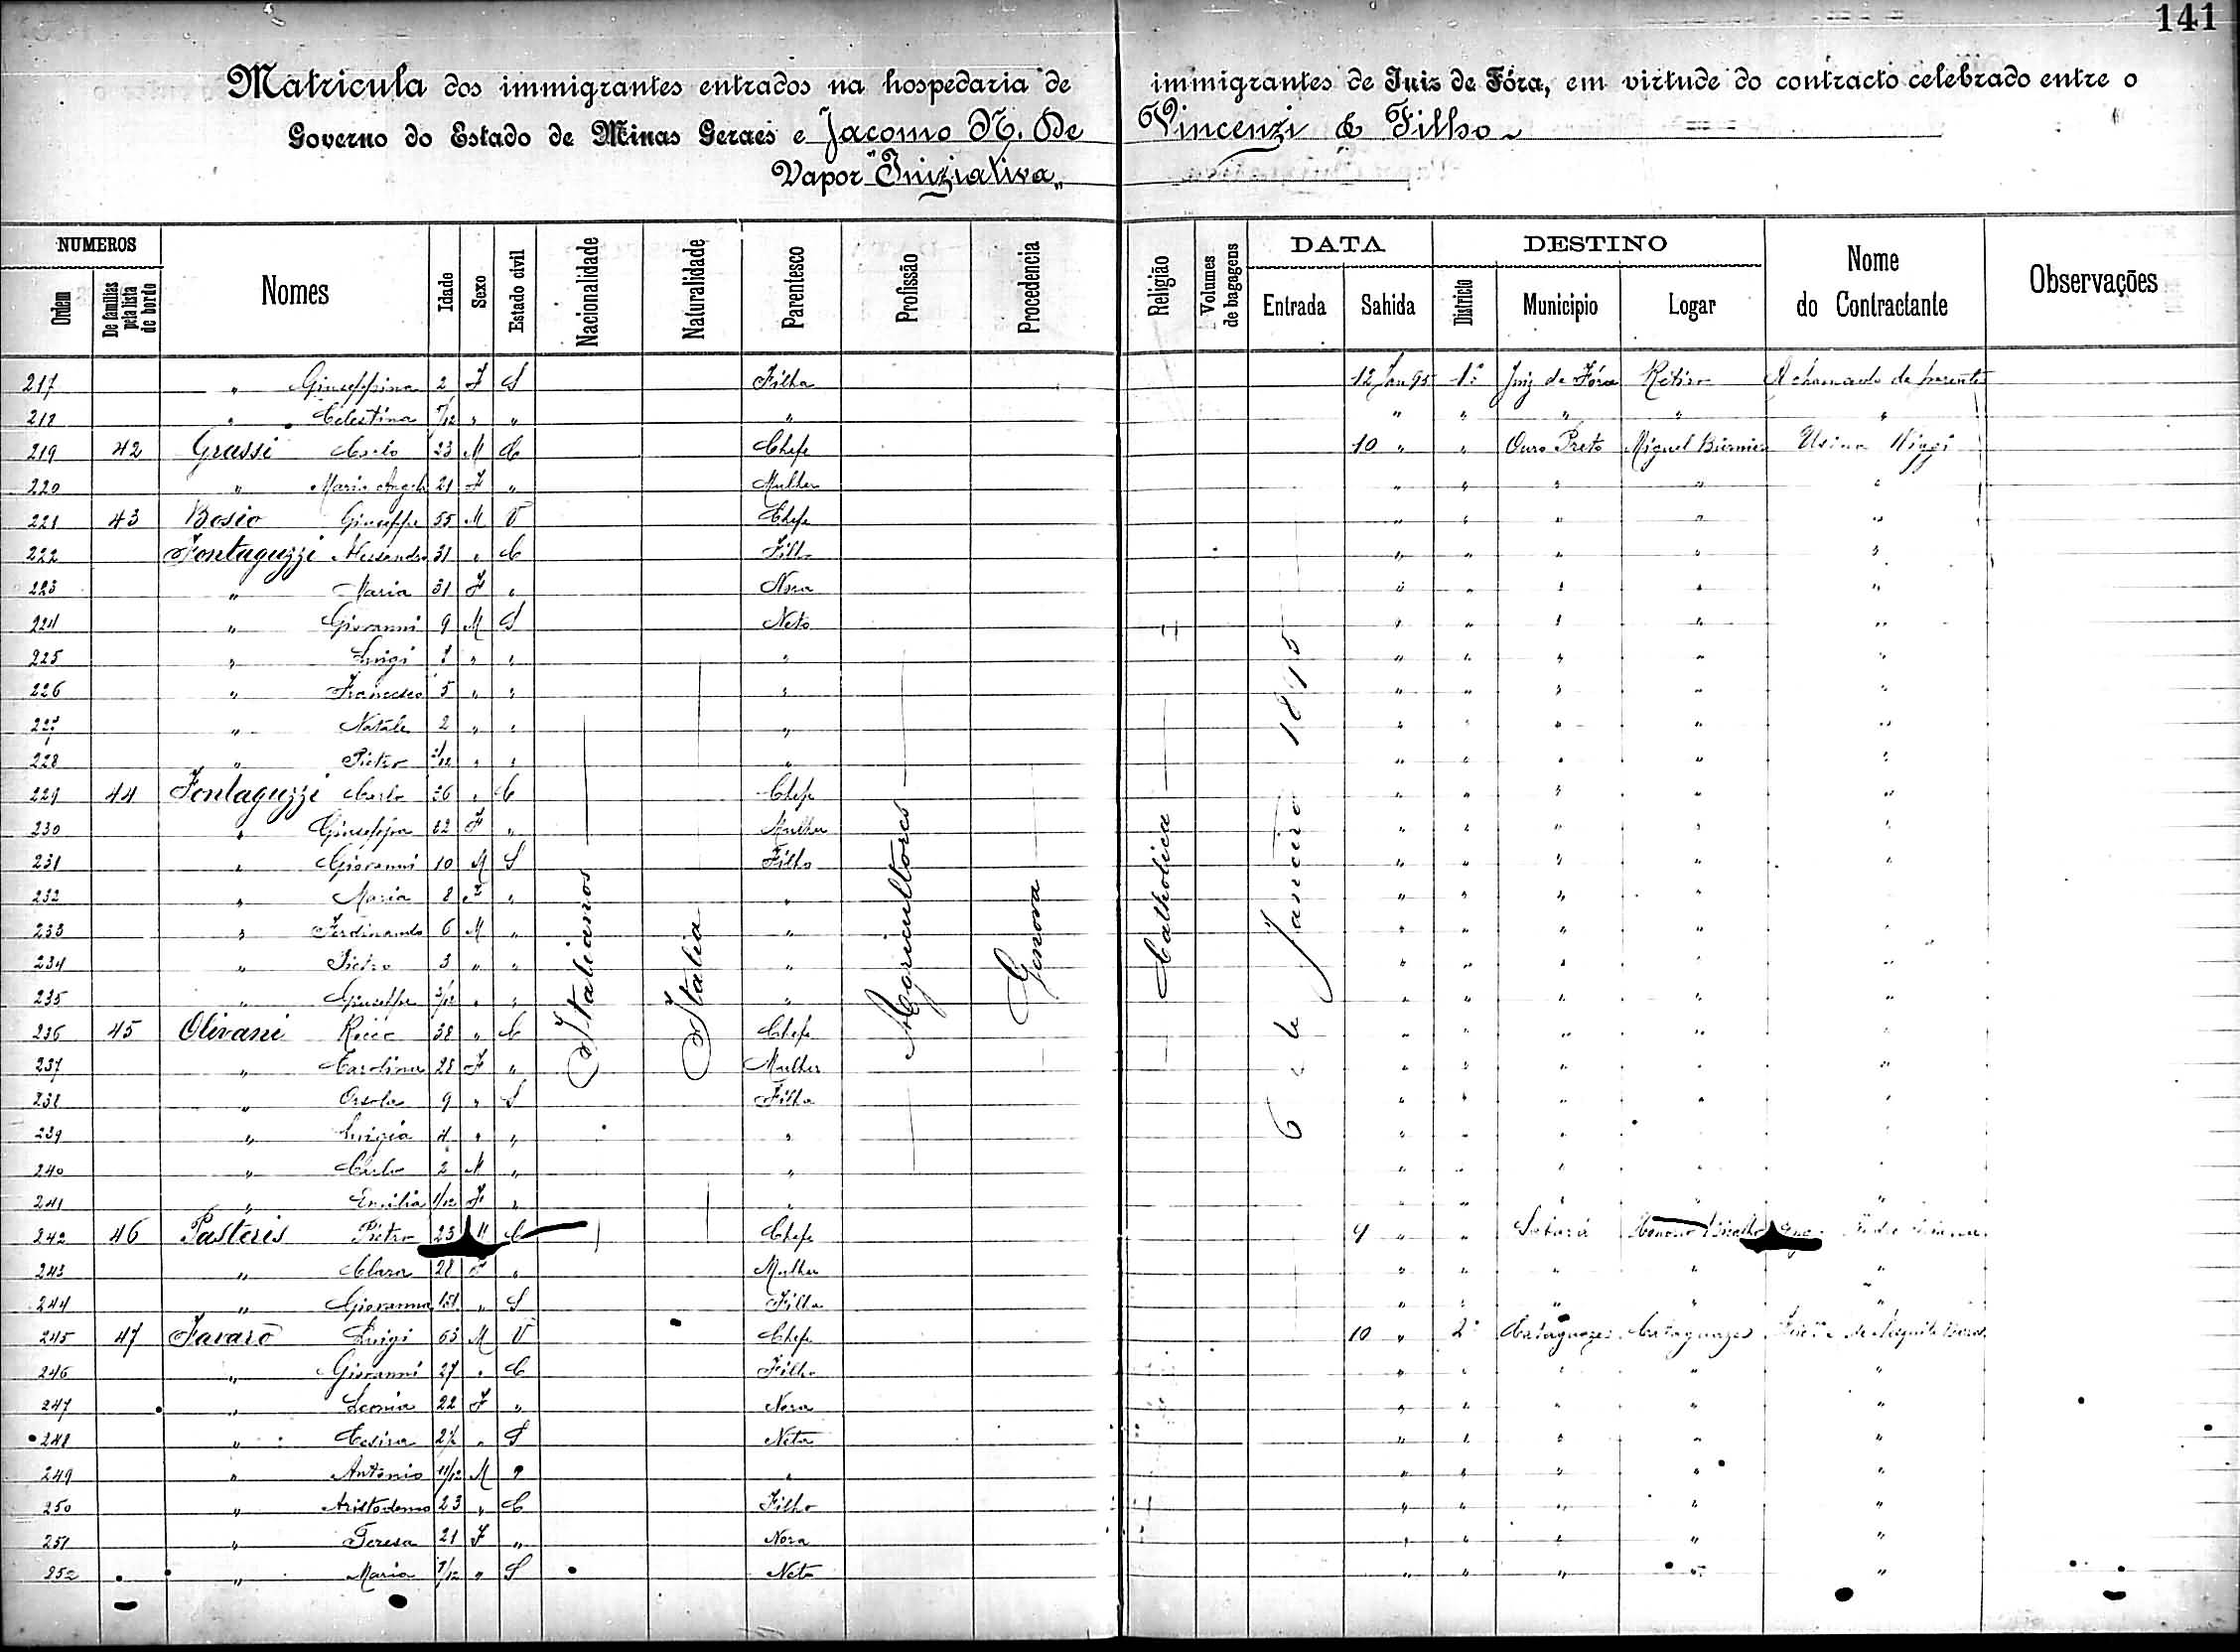 141
Matricula dos immigrantes entrados na hospedaria de immigrantes de Juiz de Fóra, em virtude do contracto celebrado entre o
Governo do Estado de Minas Geraes e Jacomo N. De Vincenzi & Filho
Vapor "Iniziativa"
NUMEROS
Ordem De familias pela lista de bordo Nomes Idade Sexo Estado civil Nacionalidade Naturalidade Parentesco Profissão Procedencia Religião Volumes de bagagens DATA Entrada Sahida DESTINO Districto Municipio Logar Nome do Contractante Observações
Italianos Italia Agricultores Genova Catholica 6 de Janeiro 1895
217 " Giuseppina 2 F S Filha 12 Jan 95 1º Juiz de Fóra Retiro A chamado de parentes
218 " Celestina 7/12 " " " " " " " "
219 42 Grassi Carlo 23 M C Chefe 10 " " Ouro Preto Miguel Burnier Usina Wigg
220 " Maria Angela 21 F " Mulher " " " " "
221 43 Bosio Giuseppe 55 M V Chefe " " " " "
222 Fontaguzzi Alessandro 31 " C Filho " " " " "
223 " Maria 31 F " Nora " " " " "
224 " Giovanni 9 M S Neto " " " " "
225 " Luigi " " " " " " " "
226 " Francesco 5 " " " " " " " "
227 " Natale 2 " " " " " " " "
228 " Pietro " " " " " " " "
229 44 Fontaguzzi Carlo 36 " C Chefe " " " " "
230 " Giuseppa F " Mulher " " " " "
231 " Giovanni 10 M S Filho " " " " "
232 " Maria 8 F " " " " " " "
233 " Ferdinando 6 M " " " " " " "
234 " Pietro 3 " " " " " " " "
235 " Giuseppe 3/12 " " " " " " " "
236 45 Olivani Rocco 38 " C Chefe " " " " "
237 " Carolina 28 F " Mulher " " " " "
238 " Orsola 9 " S Filha " " " " "
239 " Luigia 4 " " " " " " " "
240 " Carlo 2 M " " " " " " "
241 " Emilia 1/12 F " " " " " " "
242 46 Pasteris Pietro 23 M C Chefe 9 " " Sabará
243 " Clara 28 F " Mulher " " " " "
244 " Giovanna " S Filha " " " " "
245 47 Favaro Luigi 63 M V Chefe 10 " 2º Cataguazes Cataguazes
246 " Giovanni 27 " C Filho " " " " "
247 " Leonia 22 F " Nora " " " " "
248 " " S Neta " " " " "
249 " Antonio 11/12 M " " " " " " "
250 " Aristodemo 23 " C Filho " " " " "
251 " Teresa 21 F " Nora " " " " "
252 " Maria 7/12 " S Neta " " " " "